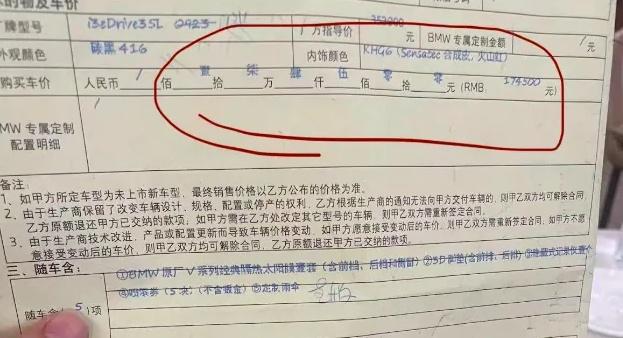 的物及车价
牌型号 i3eDrive35L 0423 厂方指导价 353900 元 BMW 专属定制金额 / 元
外观颜色 碳黑416 内饰颜色 KHG6 (Sensatec 合成皮, 火山红)
购买车价 人民币 / 佰 壹 拾 柒 万 肆 仟 伍 佰 零 拾 零 元 (RMB: 174500 元)
MW 专属定制
配置明细 /
备注:
1、如甲方所定车型为未上市新车型，最终销售价格以乙方公布的价格为准。
2、由于生产商保留了改变车辆设计、规格、配置或停产的权利，乙方根据生产商的通知无法向甲方交付车辆的，则甲乙双方均可解除合同，
乙方原额退还甲方已交纳的款项；如甲方需在乙方处改定其它型号的车辆，则甲乙双方需重新签定合同。
3、由于生产商技术改进、产品或配置更新而导致车辆价格变动，如甲方愿意接受变动后的车价，则甲乙双方需重新签定合同，如甲方不愿
意接受变动后的车价，则甲乙双方均可解除合同，乙方原额退还甲方已交纳的款项。
三、随车含:
①BMW 原厂 V 系列经典隔热太阳膜壹套（含前档、后档和侧窗）②5D脚垫(含前排、后排) ③隐藏式记录仪壹个
随车含( 5 )项 ④喷漆券（5 次）（不含钣金）⑤定制雨伞